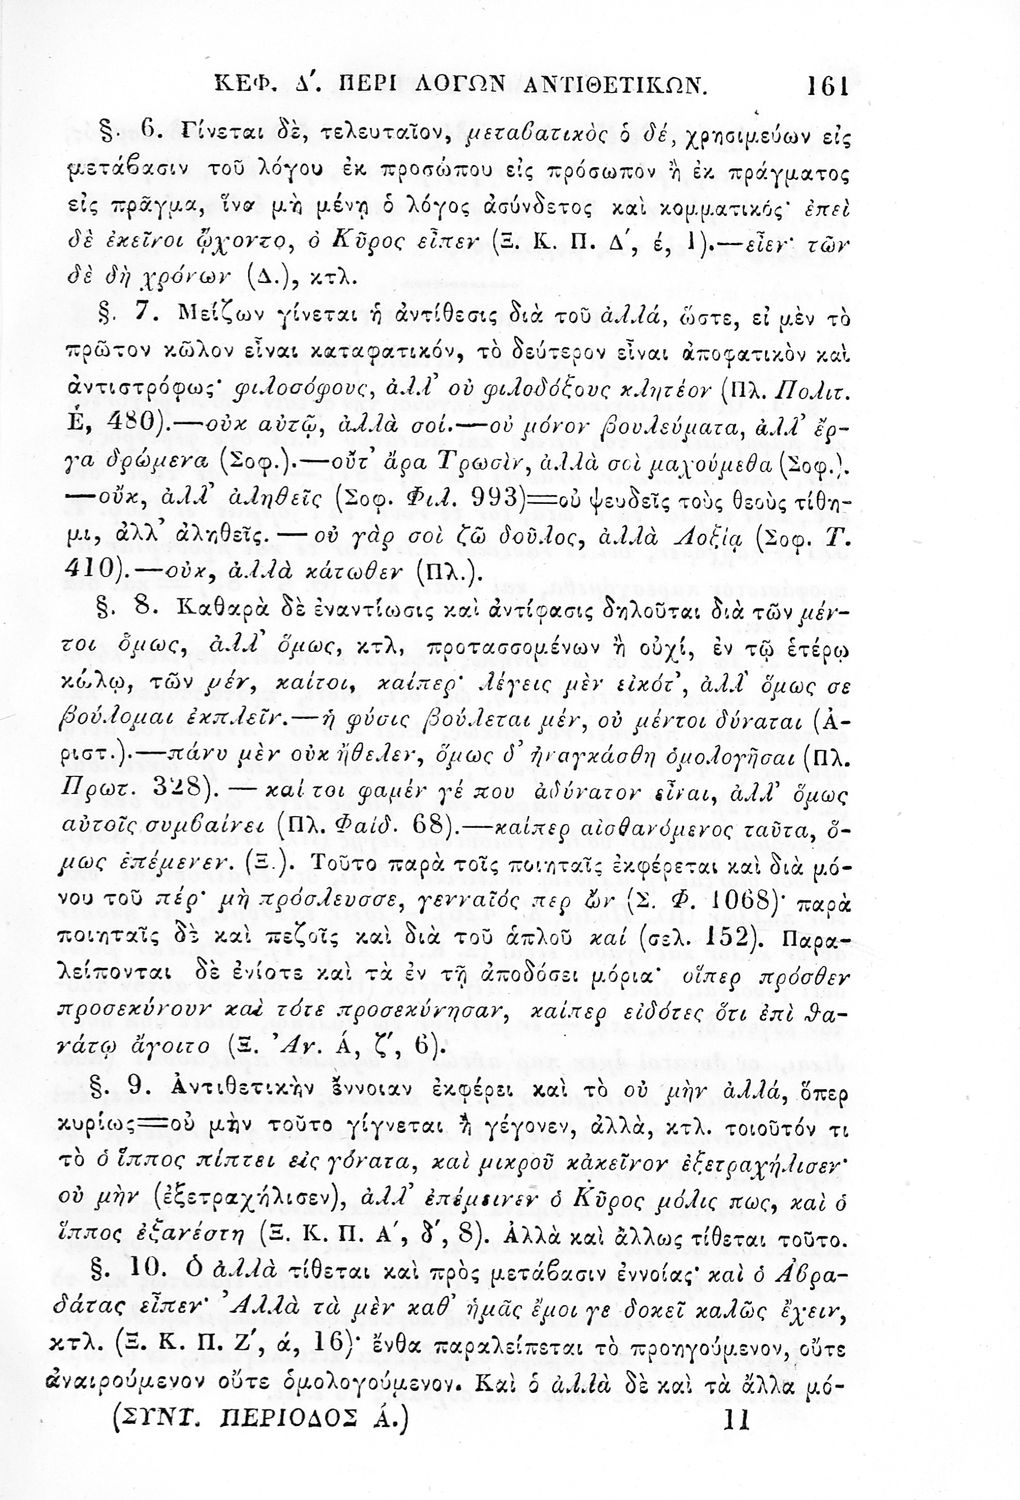 ΚΕΦ. Δ΄. ΠΕΡΙ ΛΟΓΩΝ ΑΝΤΙΘΕΤΙΚΩΝ. 161
§. 6. Γίνεται δὲ, τελευταῖον, μεταβατικὸς ὁ δέ, χρησιμεύων εἰς
μετάβασιν τοῦ λόγου ἐκ προσώπου εἰς πρόσωπον ἢ ἐκ πράγματος
εἰς πρᾶγμα, ἵνα μὴ μένῃ ὁ λόγος ἀσύνδετος καὶ κομματικός· ἐπεὶ
δὲ ἐκεῖνοι ᾤχοντο, ὁ Κῦρος εἶπεν (Ξ. Κ. Π. Δ΄, έ, 1).—εἶεν· τῶν
δὲ δὴ χρόνων (Δ.), κτλ.
§. 7. Μείζων γίνεται ἡ ἀντίθεσις διὰ τοῦ ἀλλά, ὥστε, εἰ μὲν τὸ
πρῶτον κῶλον εἶναι καταφατικόν, τὸ δεύτερον εἶναι ἀποφατικὸν καὶ
ἀντιστρόφως· φιλοσόφους, ἀλλ' οὐ φιλοδόξους κλητέον (Πλ. Πολιτ.
Έ, 480).—οὐκ αὐτῷ, ἀλλὰ σοί.—οὐ μόνον βουλεύματα, ἀλλ' ἔρ-
γα δρώμενα (Σοφ.).—οὔτ' ἄρα Τρωσὶν, ἀλλὰ σοὶ μαχούμεθα (Σοφ.).
—οὔκ, ἀλλ' ἀληθεῖς (Σοφ. Φιλ. 993)=οὐ ψευδεῖς τοὺς θεοὺς τίθη-
μι, ἀλλ' ἀληθεῖς.—οὐ γὰρ σοὶ ζῶ δοῦλος, ἀλλὰ Λοξίᾳ (Σοφ. Τ.
410).—οὐκ, ἀλλὰ κάτωθεν (Πλ.).
§. 8. Καθαρὰ δὲ ἐναντίωσις καὶ ἀντίφασις δηλοῦται διὰ τῶν μέν-
τοι ὅμως, ἀλλ' ὅμως, κτλ, προτασσομένων ἢ οὐχί, ἐν τῷ ἑτέρῳ
κώλῳ, τῶν μέν, καίτοι, καίπερ· λέγεις μὲν εἰκότ', ἀλλ' ὅμως σε
βούλομαι ἐκπλεῖν.—ἡ φύσις βούλεται μέν, οὐ μέντοι δύναται (Ἀ-
ριστ.).—πάνυ μὲν οὐκ ἤθελεν, ὅμως δ' ἠναγκάσθη ὁμολογῆσαι (Πλ.
Πρωτ. 328).—καί τοι φαμέν γέ που ἀδύνατον εἶναι, ἀλλ' ὅμως
αὐτοῖς συμβαίνει (Πλ. Φαίδ. 68).—καίπερ αἰσθανόμενος ταῦτα, ὅ-
μως ἐπέμενεν. (Ξ.). Τοῦτο παρὰ τοῖς ποιηταῖς ἐκφέρεται καὶ διὰ μό-
νου τοῦ πέρ· μὴ πρόσλευσσε, γενναῖός περ ὢν (Σ. Φ. 1068)· παρὰ
ποιηταῖς δὲ καὶ πεζοῖς καὶ διὰ τοῦ ἁπλοῦ καί (σελ. 152). Παρα-
λείπονται δὲ ἐνίοτε καὶ τὰ ἐν τῇ ἀποδόσει μόρια· οἵπερ πρόσθεν
προσεκύνουν καὶ τότε προσεκύνησαν, καίπερ εἰδότες ὅτι ἐπὶ θα-
νάτῳ ἄγοιτο (Ξ. Ἀν. Ά, ζ΄, 6).
§. 9. Ἀντιθετικὴν ἔννοιαν ἐκφέρει καὶ τὸ οὐ μὴν ἀλλά, ὅπερ
κυρίως=οὐ μὴν τοῦτο γίγνεται ἢ γέγονεν, ἀλλὰ, κτλ. τοιοῦτόν τι
τὸ ὁ ἵππος πίπτει εἰς γόνατα, καὶ μικροῦ κἀκεῖνον ἐξετραχήλισεν·
οὐ μὴν (ἐξετραχήλισεν), ἀλλ' ἐπέμεινεν ὁ Κῦρος μόλις πως, καὶ ὁ
ἵππος ἐξανέστη (Ξ. Κ. Π. Α΄, δ΄, 8). Ἀλλὰ καὶ ἄλλως τίθεται τοῦτο.
§. 10. Ὁ ἀλλὰ τίθεται καὶ πρὸς μετάβασιν ἐννοίας· καὶ ὁ Ἀβρα-
δάτας εἶπεν· Ἀλλὰ τὰ μὲν καθ' ἡμᾶς ἔμοι γε δοκεῖ καλῶς ἔχειν,
κτλ. (Ξ. Κ. Π. Ζ΄, ά, 16)· ἔνθα παραλείπεται τὸ προηγούμενον, οὔτε
ἀναιρούμενον οὔτε ὁμολογούμενον. Καὶ ὁ ἀλλὰ δὲ καὶ τὰ ἄλλα μό-
(ΣΥΝΤ. ΠΕΡΙΟΔΟΣ Ά.) 11